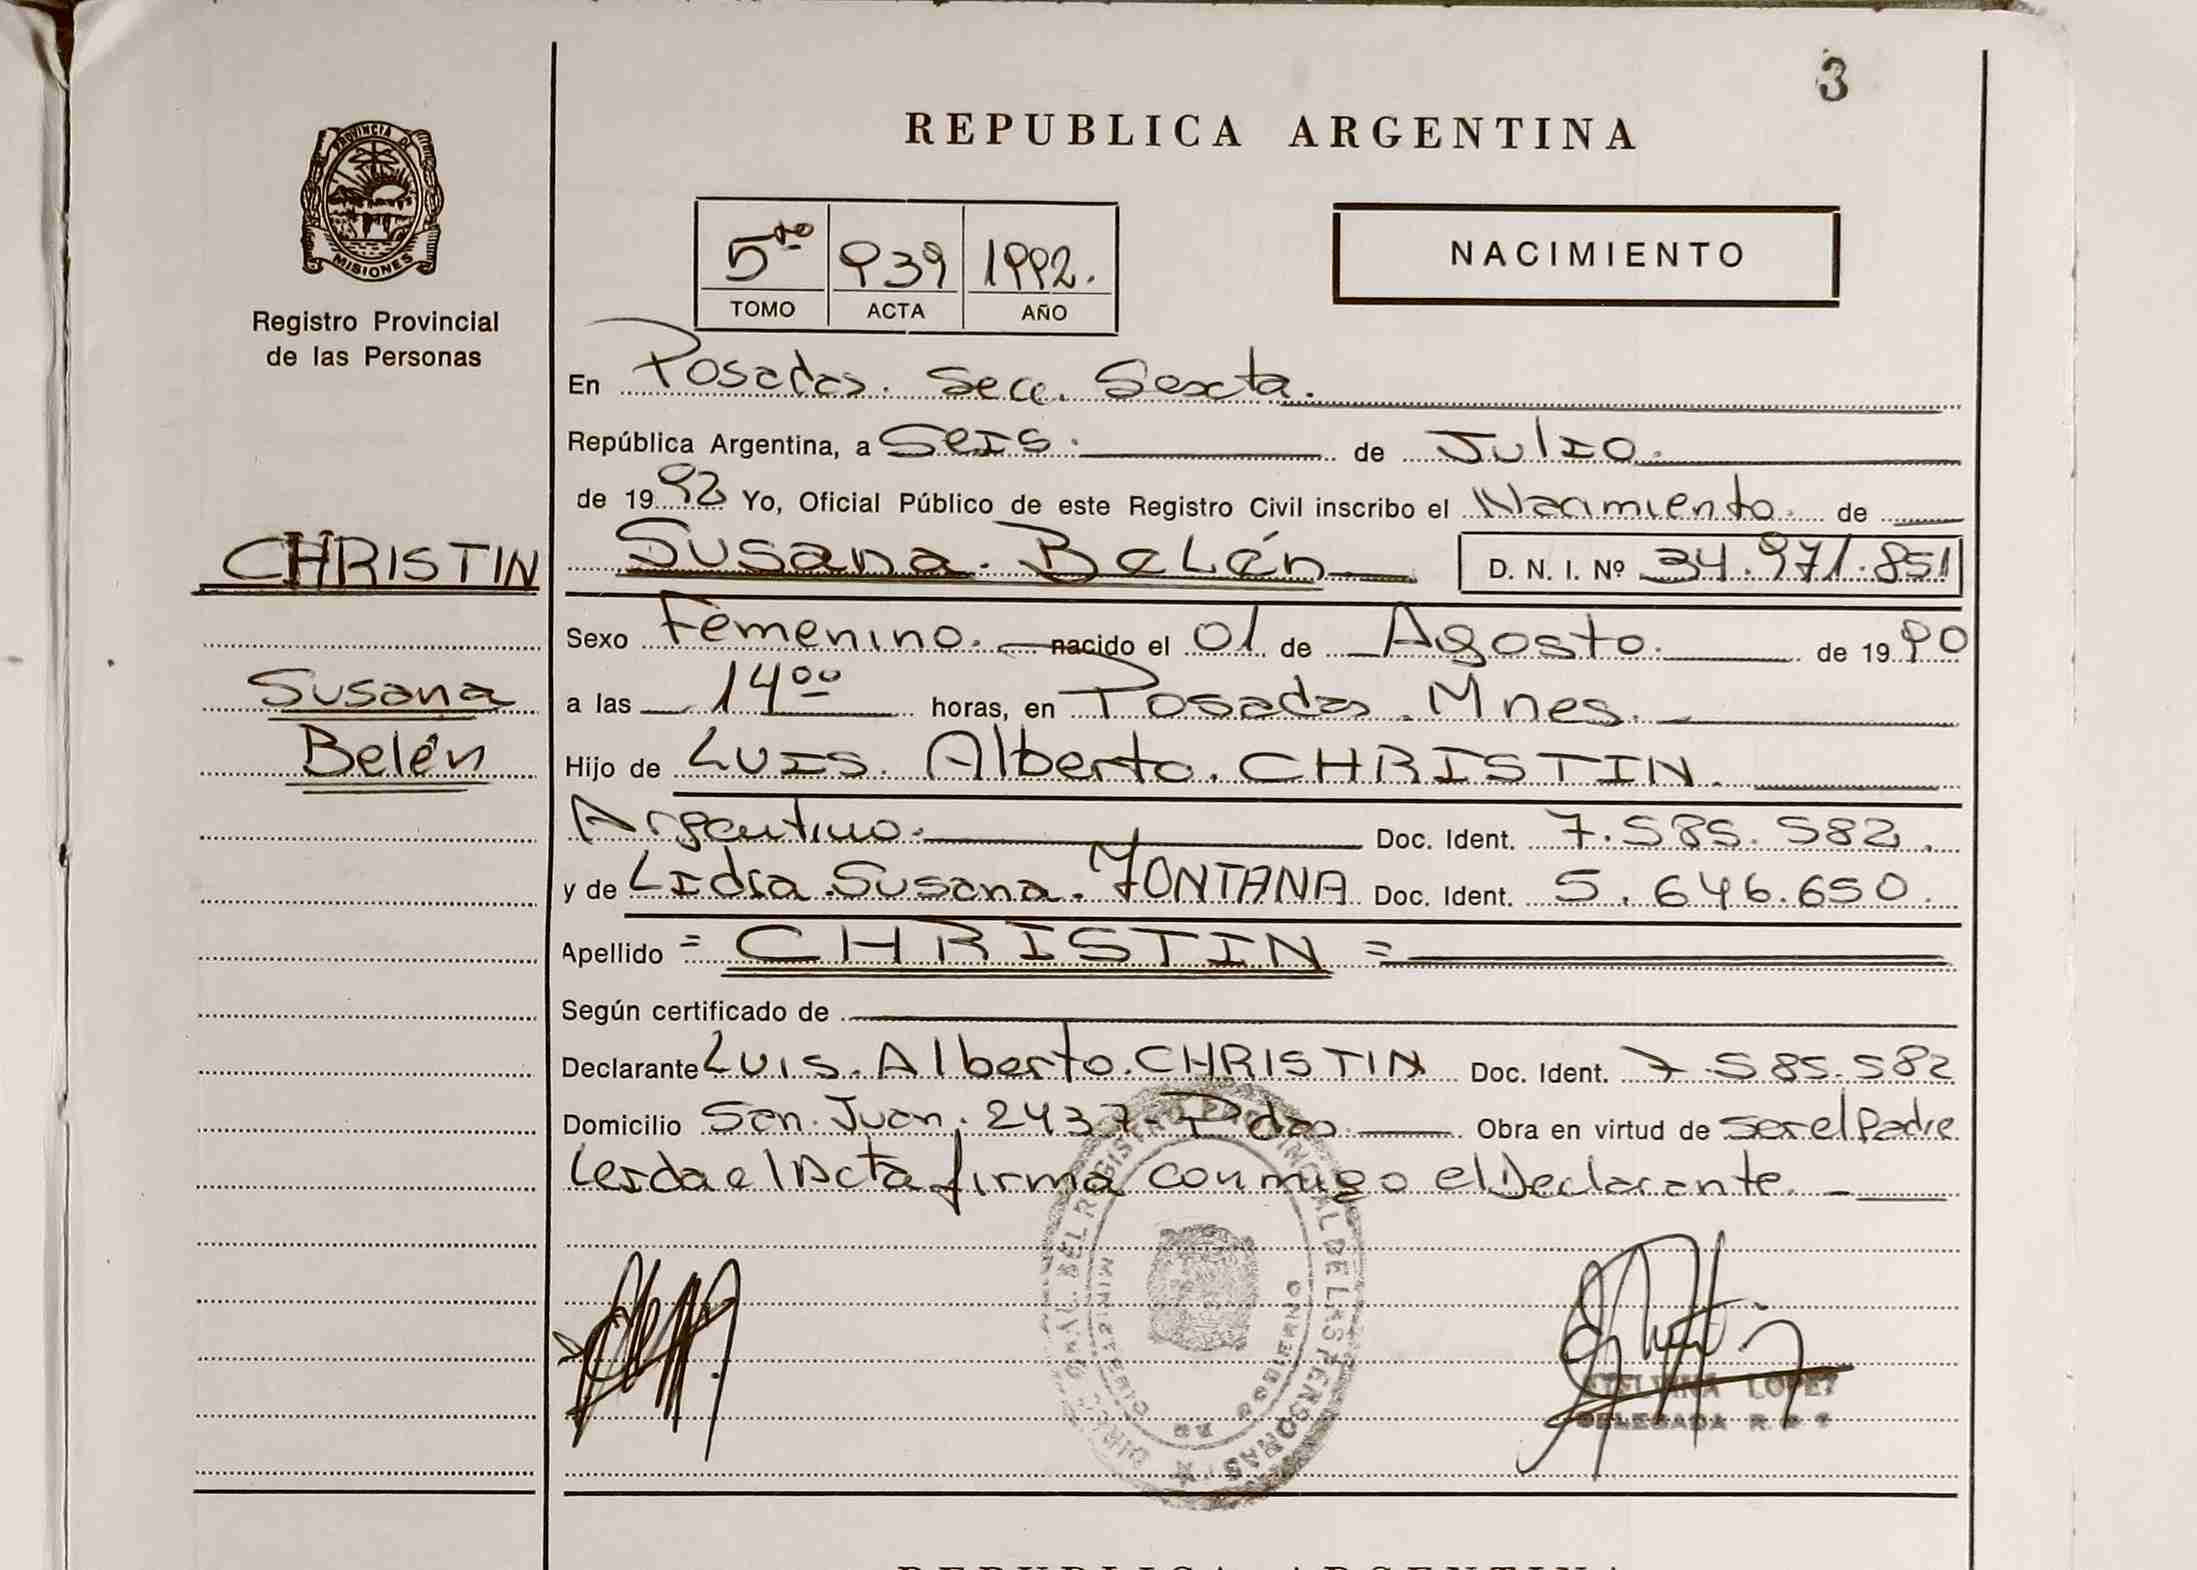 3
PROVINCIA DE
MISIONES
Registro Provincial
de las Personas
REPUBLICA ARGENTINA
5to 939 1992.
TOMO ACTA AÑO
NACIMIENTO
En Posadas. Secc. Sexta.
República Argentina, a Seis. de Julio.
de 1992 Yo, Oficial Público de este Registro Civil inscribo el Nacimiento. de
CHRISTIN
Susana
Belén
Susana. Belén D. N. I. Nº 34.971.851
Sexo Femenino. nacido el 01 de Agosto. de 1990
a las 14 00 horas, en Posadas. Mnes.
Hijo de Luis. Alberto. CHRISTIN.
Argentino. Doc. Ident. 7.585.582.
y de Lidia. Susana. FONTANA Doc. Ident. 5.646.650.
Apellido = CHRISTIN =
Según certificado de
Declarante Luis. Alberto. CHRISTIN Doc. Ident. 7.585.582
Domicilio San. Juan. 2437- Pdas Obra en virtud de ser el Padre
Leida el Acta firma conmigo el Declarante.
REGISTRO PROVINCIAL DE LAS PERSONAS
LOPEZ
DELEGADA
REPUBLICA ARGENTINA